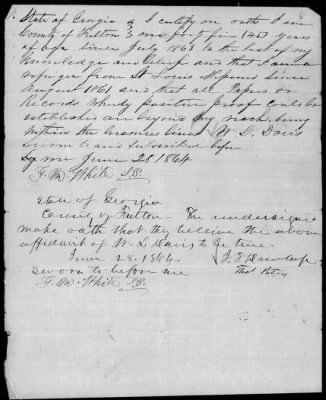 State of Georgia } I certify on oath I am
County of Fulton } me forty five (45) years
of age since July 1863 to the best of my
Knowledge and belief and that I am a
refugee from St Louis since
August 1861 and that all Papers or
Records whereby positive proof could be
establish are beyond my reach being
within the enemies lines W. L. Davis
sworn to and subscribed before
by me June 28 1864
F. M. White J.P.
State of Georgia
County of Fulton - The undersigned
make oath that they believe the above
affidavit of W. L. Davis to be true.
June 28. 1864.
sworn to before me
F. M. White J.P.